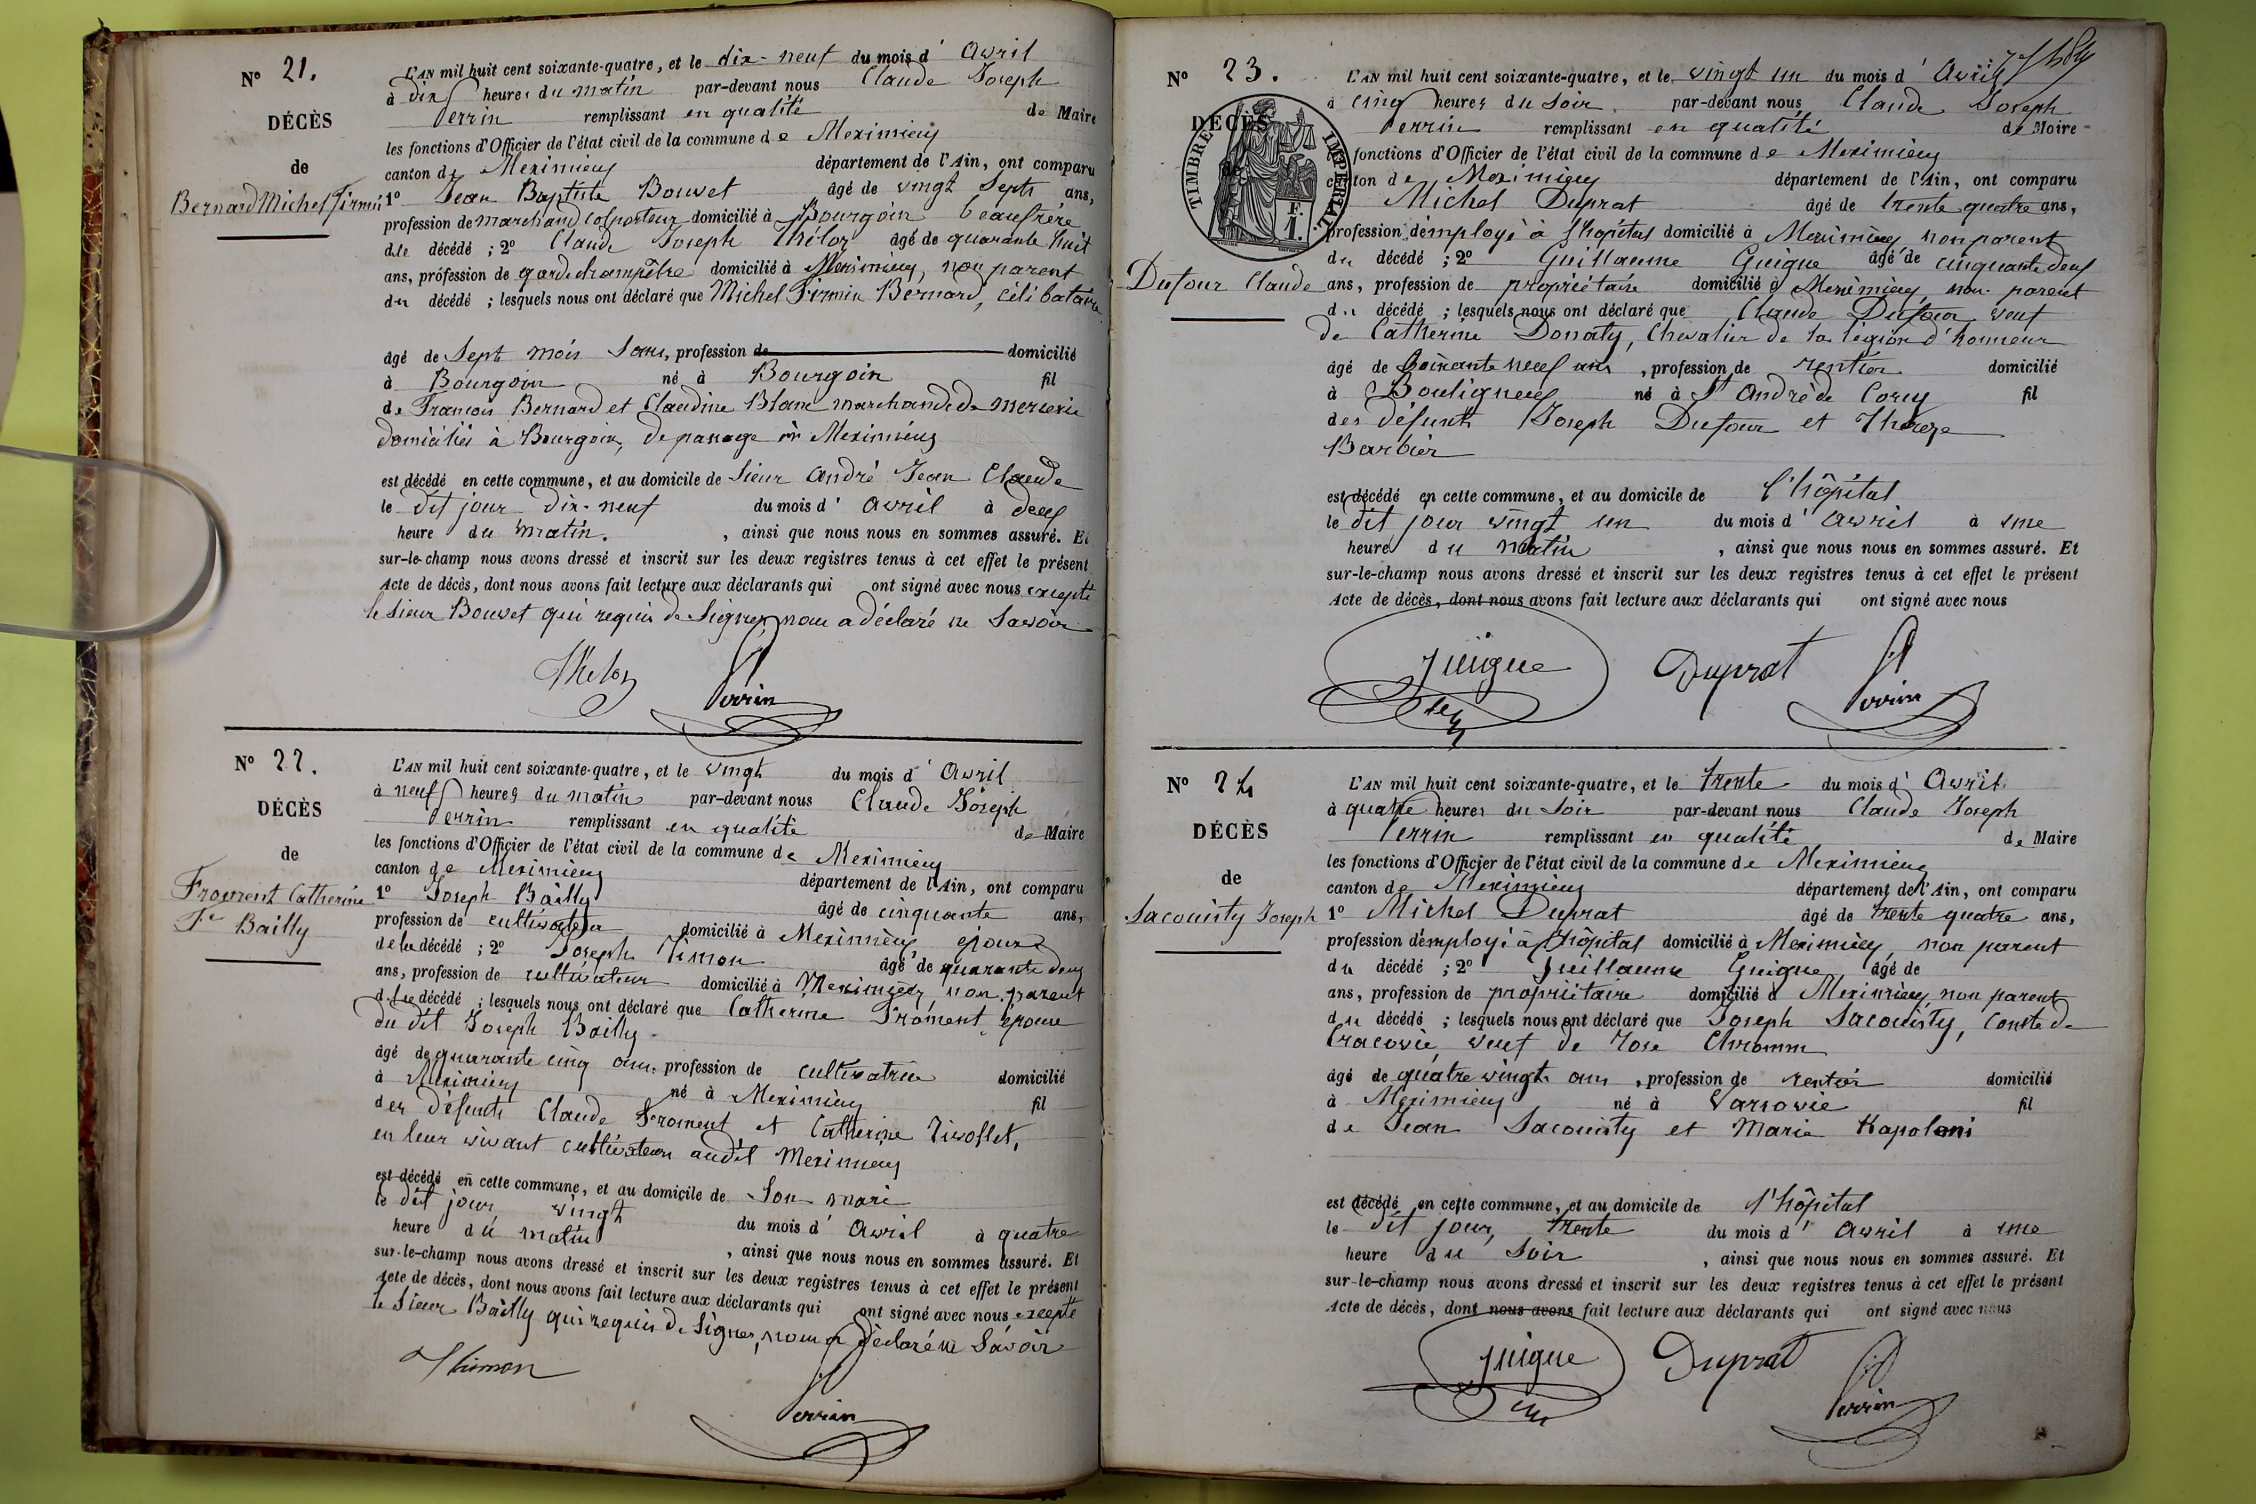 N° 21.
DÉCÈS
de
Bernard Michel Firmin
L'AN mil huit cent soixante-quatre, et le dix-neuf du mois d'Avril
à dix heures du matin par-devant nous Claude Joseph
Perrin remplissant en qualité de Maire
les fonctions d'Officier de l'état civil de la commune de Meximieux
canton de Meximieux département de l'Ain, ont comparu
1° Jean Baptiste Bouvet âgé de vingt sept ans,
profession de marchand colporteur domicilié à Bourgoin beaufrère
du décédé ; 2° Claude Joseph Théloz âgé de quarante huit
ans, profession de garde champêtre domicilié à Meximieux, non parent
du décédé ; lesquels nous ont déclaré que Michel Firmin Bernard, célibataire
âgé de Sept mois Sans, profession de domicilié
à Bourgoin né à Bourgoin fil
de François Bernard et Claudine Blanc marchands de mercerie
domiciliés à Bourgoin, de passage à Meximieux
est décédé en cette commune, et au domicile de Sieur André Jean Claude
le dit jour dix-neuf du mois d'Avril à deux
heure du matin. , ainsi que nous nous en sommes assuré. Et
sur-le-champ nous avons dressé et inscrit sur les deux registres tenus à cet effet le présent
Acte de décès, dont nous avons fait lecture aux déclarants qui ont signé avec nous excepté
le Sieur Bouvet qui requis de Signer, nous a déclaré ne Savoir
Theloz Perrin
N° 22.
DÉCÈS
de
Froment Catherine
Fe Bailly
L'AN mil huit cent soixante-quatre, et le vingt du mois d'Avril
à neuf heures du matin par-devant nous Claude Joseph
Perrin remplissant en qualité de Maire
les fonctions d'Officier de l'état civil de la commune de Meximieux
canton de Meximieux département de l'Ain, ont comparu
1° Joseph Bailly âgé de cinquante ans,
profession de cultivateur domicilié à Meximieux époux
de la décédé ; 2° Joseph Timon âgé de quarante deux
ans, profession de cultivateur domicilié à Meximieux, non parent
de la décédé ; lesquels nous ont déclaré que Catherine Froment, épouse
du dit Joseph Bailly
âgé de quarante cinq ans, profession de cultivatrice domicilié
à Meximieux né à Meximieux fil
des défunts Claude Froment et Catherine Tivollet,
en leur vivant cultivateurs audit Meximieux
est décédé en cette commune, et au domicile de Son mari
le dit jour vingt du mois d'Avril à quatre
heure du matin , ainsi que nous nous en sommes assuré. Et
sur-le-champ nous avons dressé et inscrit sur les deux registres tenus à cet effet le présent
Acte de décès, dont nous avons fait lecture aux déclarants qui ont signé avec nous excepté
le Sieur Bailly qui requis de Signer, nous a déclaré ne Savoir
Thimon
Perrin
N° 23.
DÉCÈS
TIMBRE IMPERIAL
F.
1.
Dufour Claude
L'AN mil huit cent soixante-quatre, et le vingt un du mois d'Avril
à cinq heures du Soir par-devant nous Claude Joseph
Perrin remplissant en qualité de Maire
fonctions d'Officier de l'état civil de la commune de Meximieux
canton de Meximieux département de l'Ain, ont comparu
Michel Duprat âgé de trente quatre ans,
profession d'employé à l'hôpital domicilié à Meximieux non parent
du décédé ; 2° Guillaume Guigue âgé de cinquante deux
ans, profession de propriétaire domicilié à Meximieux, non parent
du décédé ; lesquels nous ont déclaré que Claude Dufour, veuf
de Catherine Donaty, Chevalier de la légion d'honneur
âgé de Soixante neuf ans , profession de rentier domicilié
à Bouligneux né à St André de Corcy fil
des défunts Joseph Dufour et Thérèze
Barbier
est décédé en cette commune, et au domicile de l'hôpital
le dit jour vingt un du mois d'Avril à une
heure du matin , ainsi que nous nous en sommes assuré. Et
sur-le-champ nous avons dressé et inscrit sur les deux registres tenus à cet effet le présent
Acte de décès, dont nous avons fait lecture aux déclarants qui ont signé avec nous
Guigue Duprat Perrin
N° 24
DÉCÈS
de
Sacouisty Joseph
L'AN mil huit cent soixante-quatre, et le trente du mois d'Avril
à quatre heures du Soir par-devant nous Claude Joseph
Perrin remplissant en qualité de Maire
les fonctions d'Officier de l'état civil de la commune de Meximieux
canton de Meximieux département de l'Ain, ont comparu
1° Michel Duprat âgé de trente quatre ans,
profession d'employé à l'hôpital domicilié à Meximieux, non parent
du décédé ; 2° Guillaume Guigue, âgé de
ans, profession de propriétaire domicilié à Meximieux, non parent
du décédé ; lesquels nous ont déclaré que Joseph Sacouisty, Comte de
Cracovie, veuf de Rose Chromm
âgé de quatre vingts ans , profession de rentier domicilié
à Meximieux né à Varsovie fil
de Jean Sacouisty et Marie Kapoloni
est décédé en cette commune, et au domicile de l'hôpital
le dit jour, trente du mois d'Avril à une
heure du Soir , ainsi que nous nous en sommes assuré. Et
sur-le-champ nous avons dressé et inscrit sur les deux registres tenus à cet effet le présent
Acte de décès, dont nous avons fait lecture aux déclarants qui ont signé avec nous
Guigue Duprat Perrin